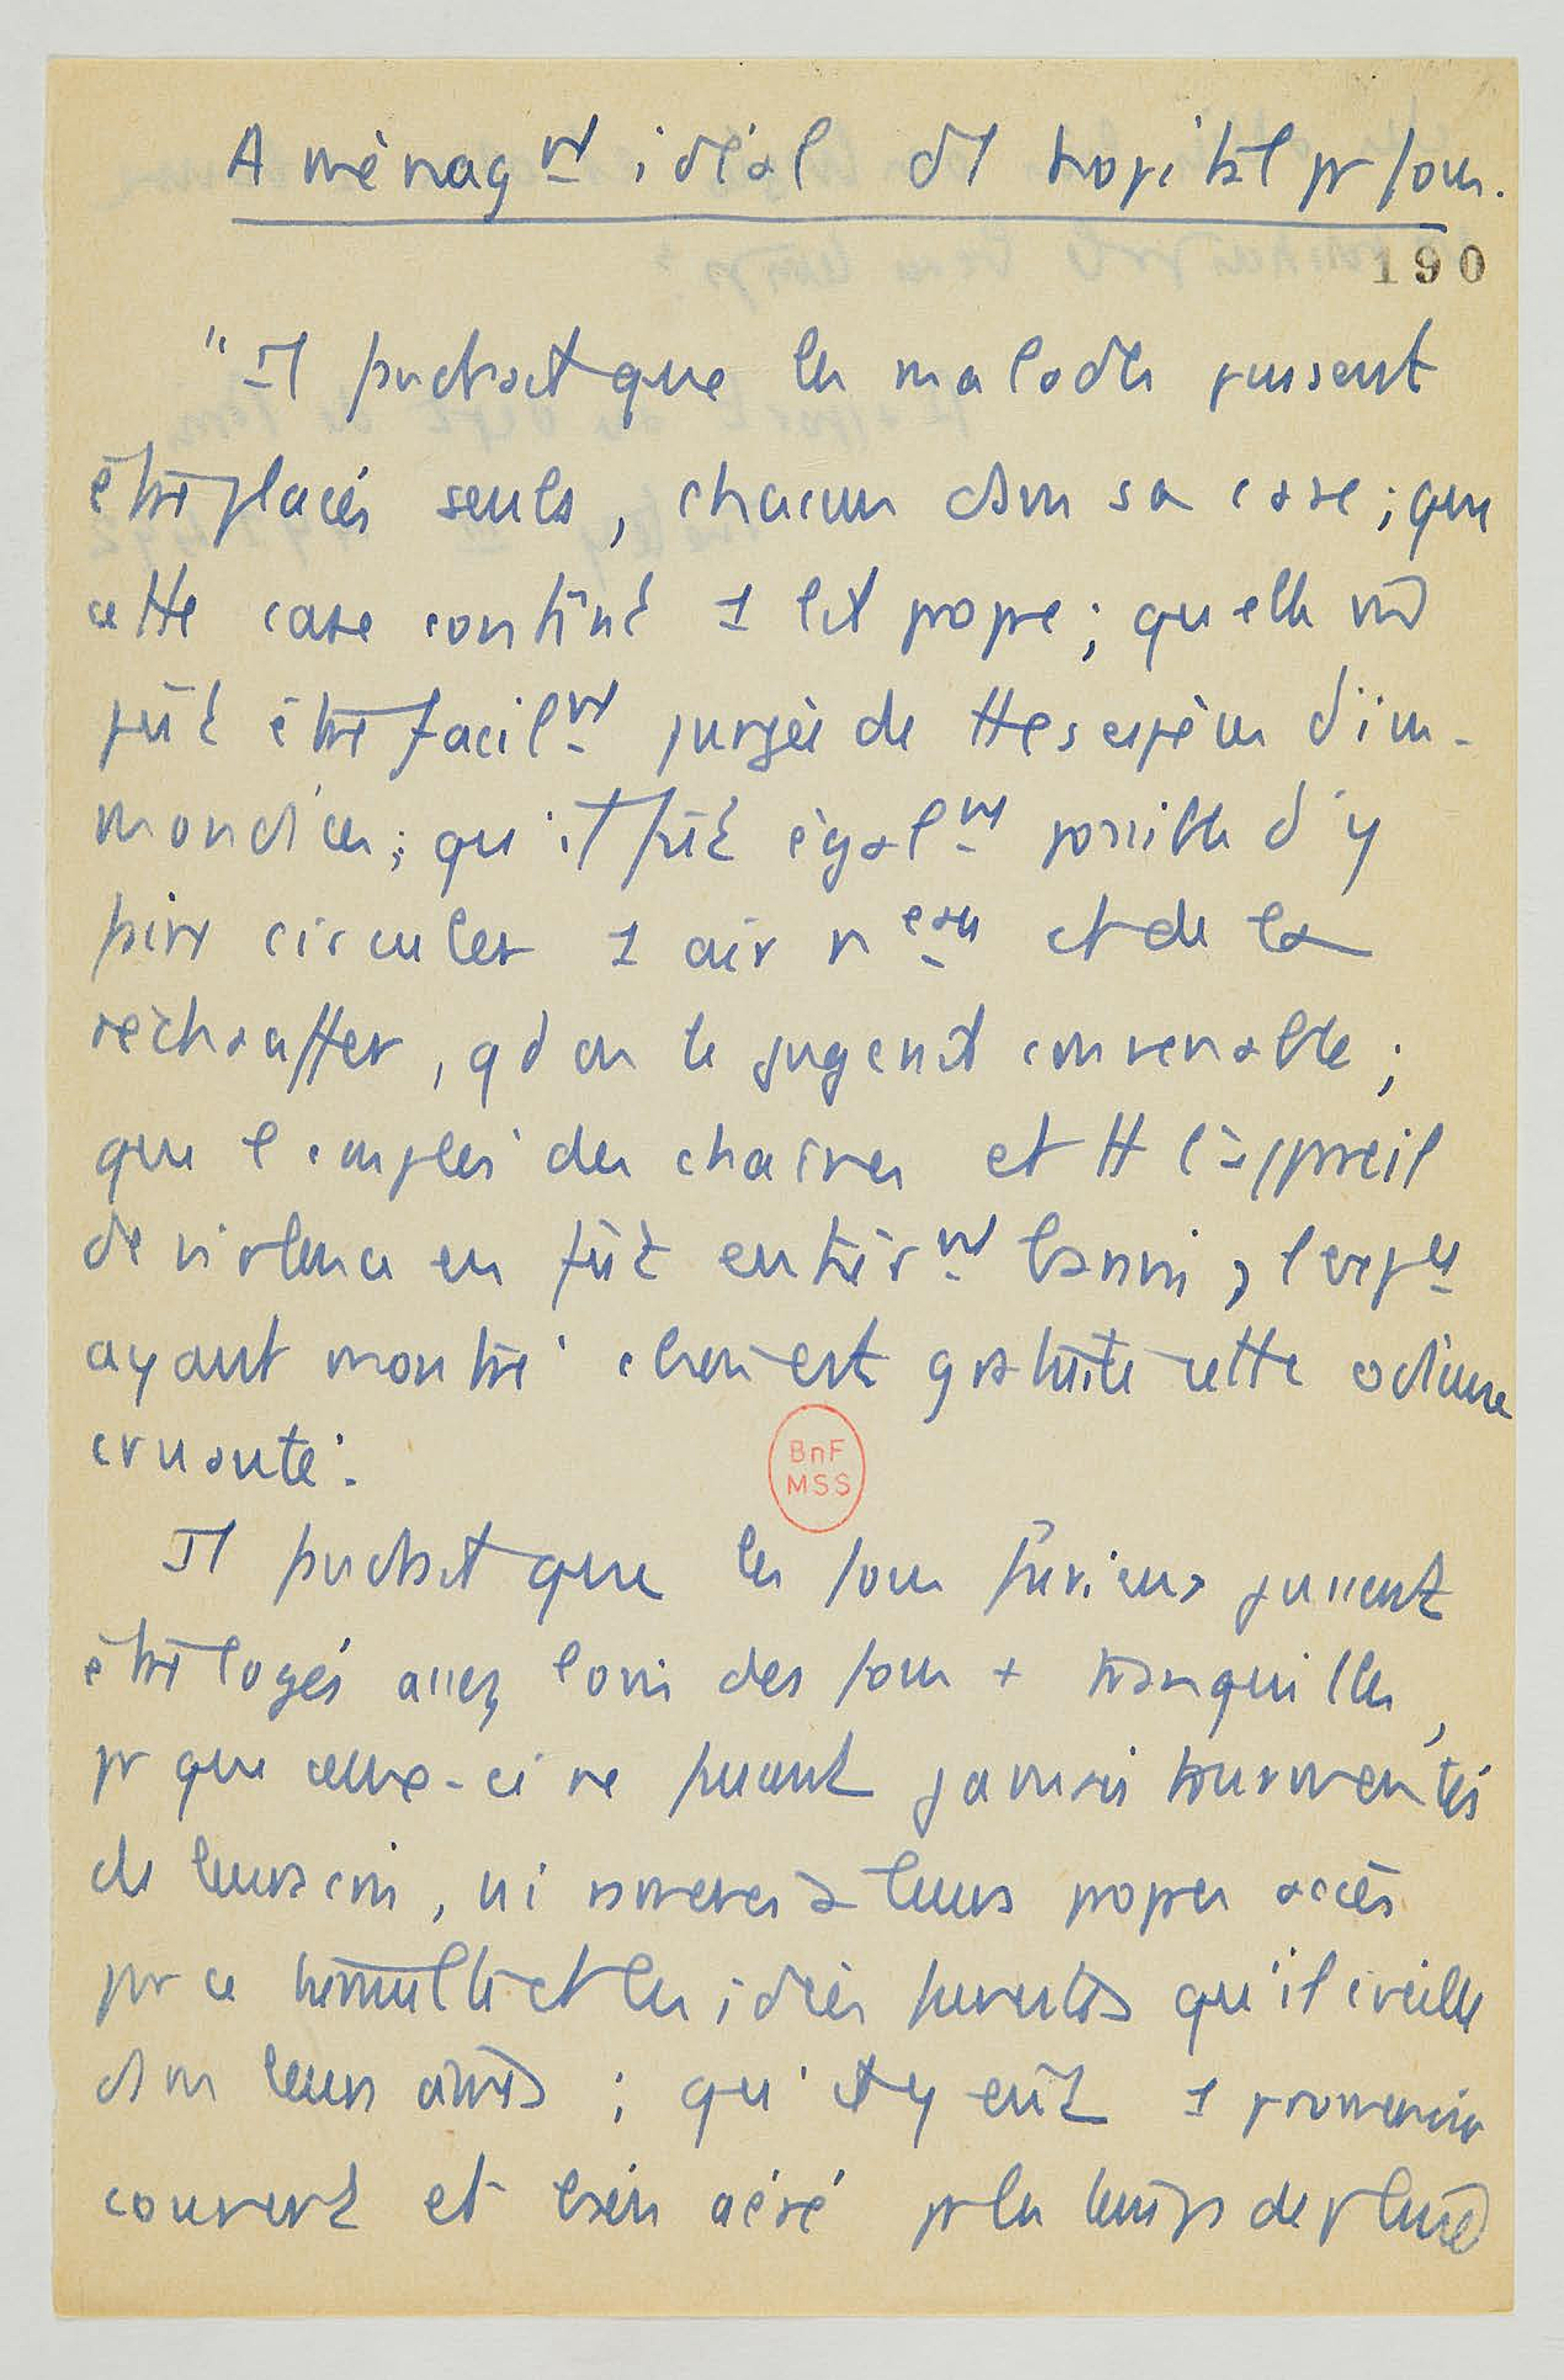 Aménagt idéal d1 hôpital pr fous.
190
"Il faudrait que les malades pussent
être placés seuls, chacun dans sa case ; que
cette case contînt 1 lit propre ; qu'elle
pût être facilt purgée de ttes espèces d'im-
mondices ; qu'il fût égalt possible d'y
faire circuler 1 air neau et de la
réchauffer, qd on le jugerait convenable ;
que l'emploi des chaînes et tt l'appareil
de violence en fût entièrt banni, l'expce
ayant montré cbien est gratuite cette odieuse
cruauté.
Il faudrait que les fous furieux pussent
être logés assez loin des fous + tranquilles,
pr que ceux-ci ne fussent jamais tourmentés
de leurs cris, ni ramenés à leurs propres accès
par ce tumulte et les idées funestes qu'il éveille
dans leurs âmes ; qu'il y eût 1 promenoir
couvert et bien aéré pr les temps de pluie
BnF
MSS